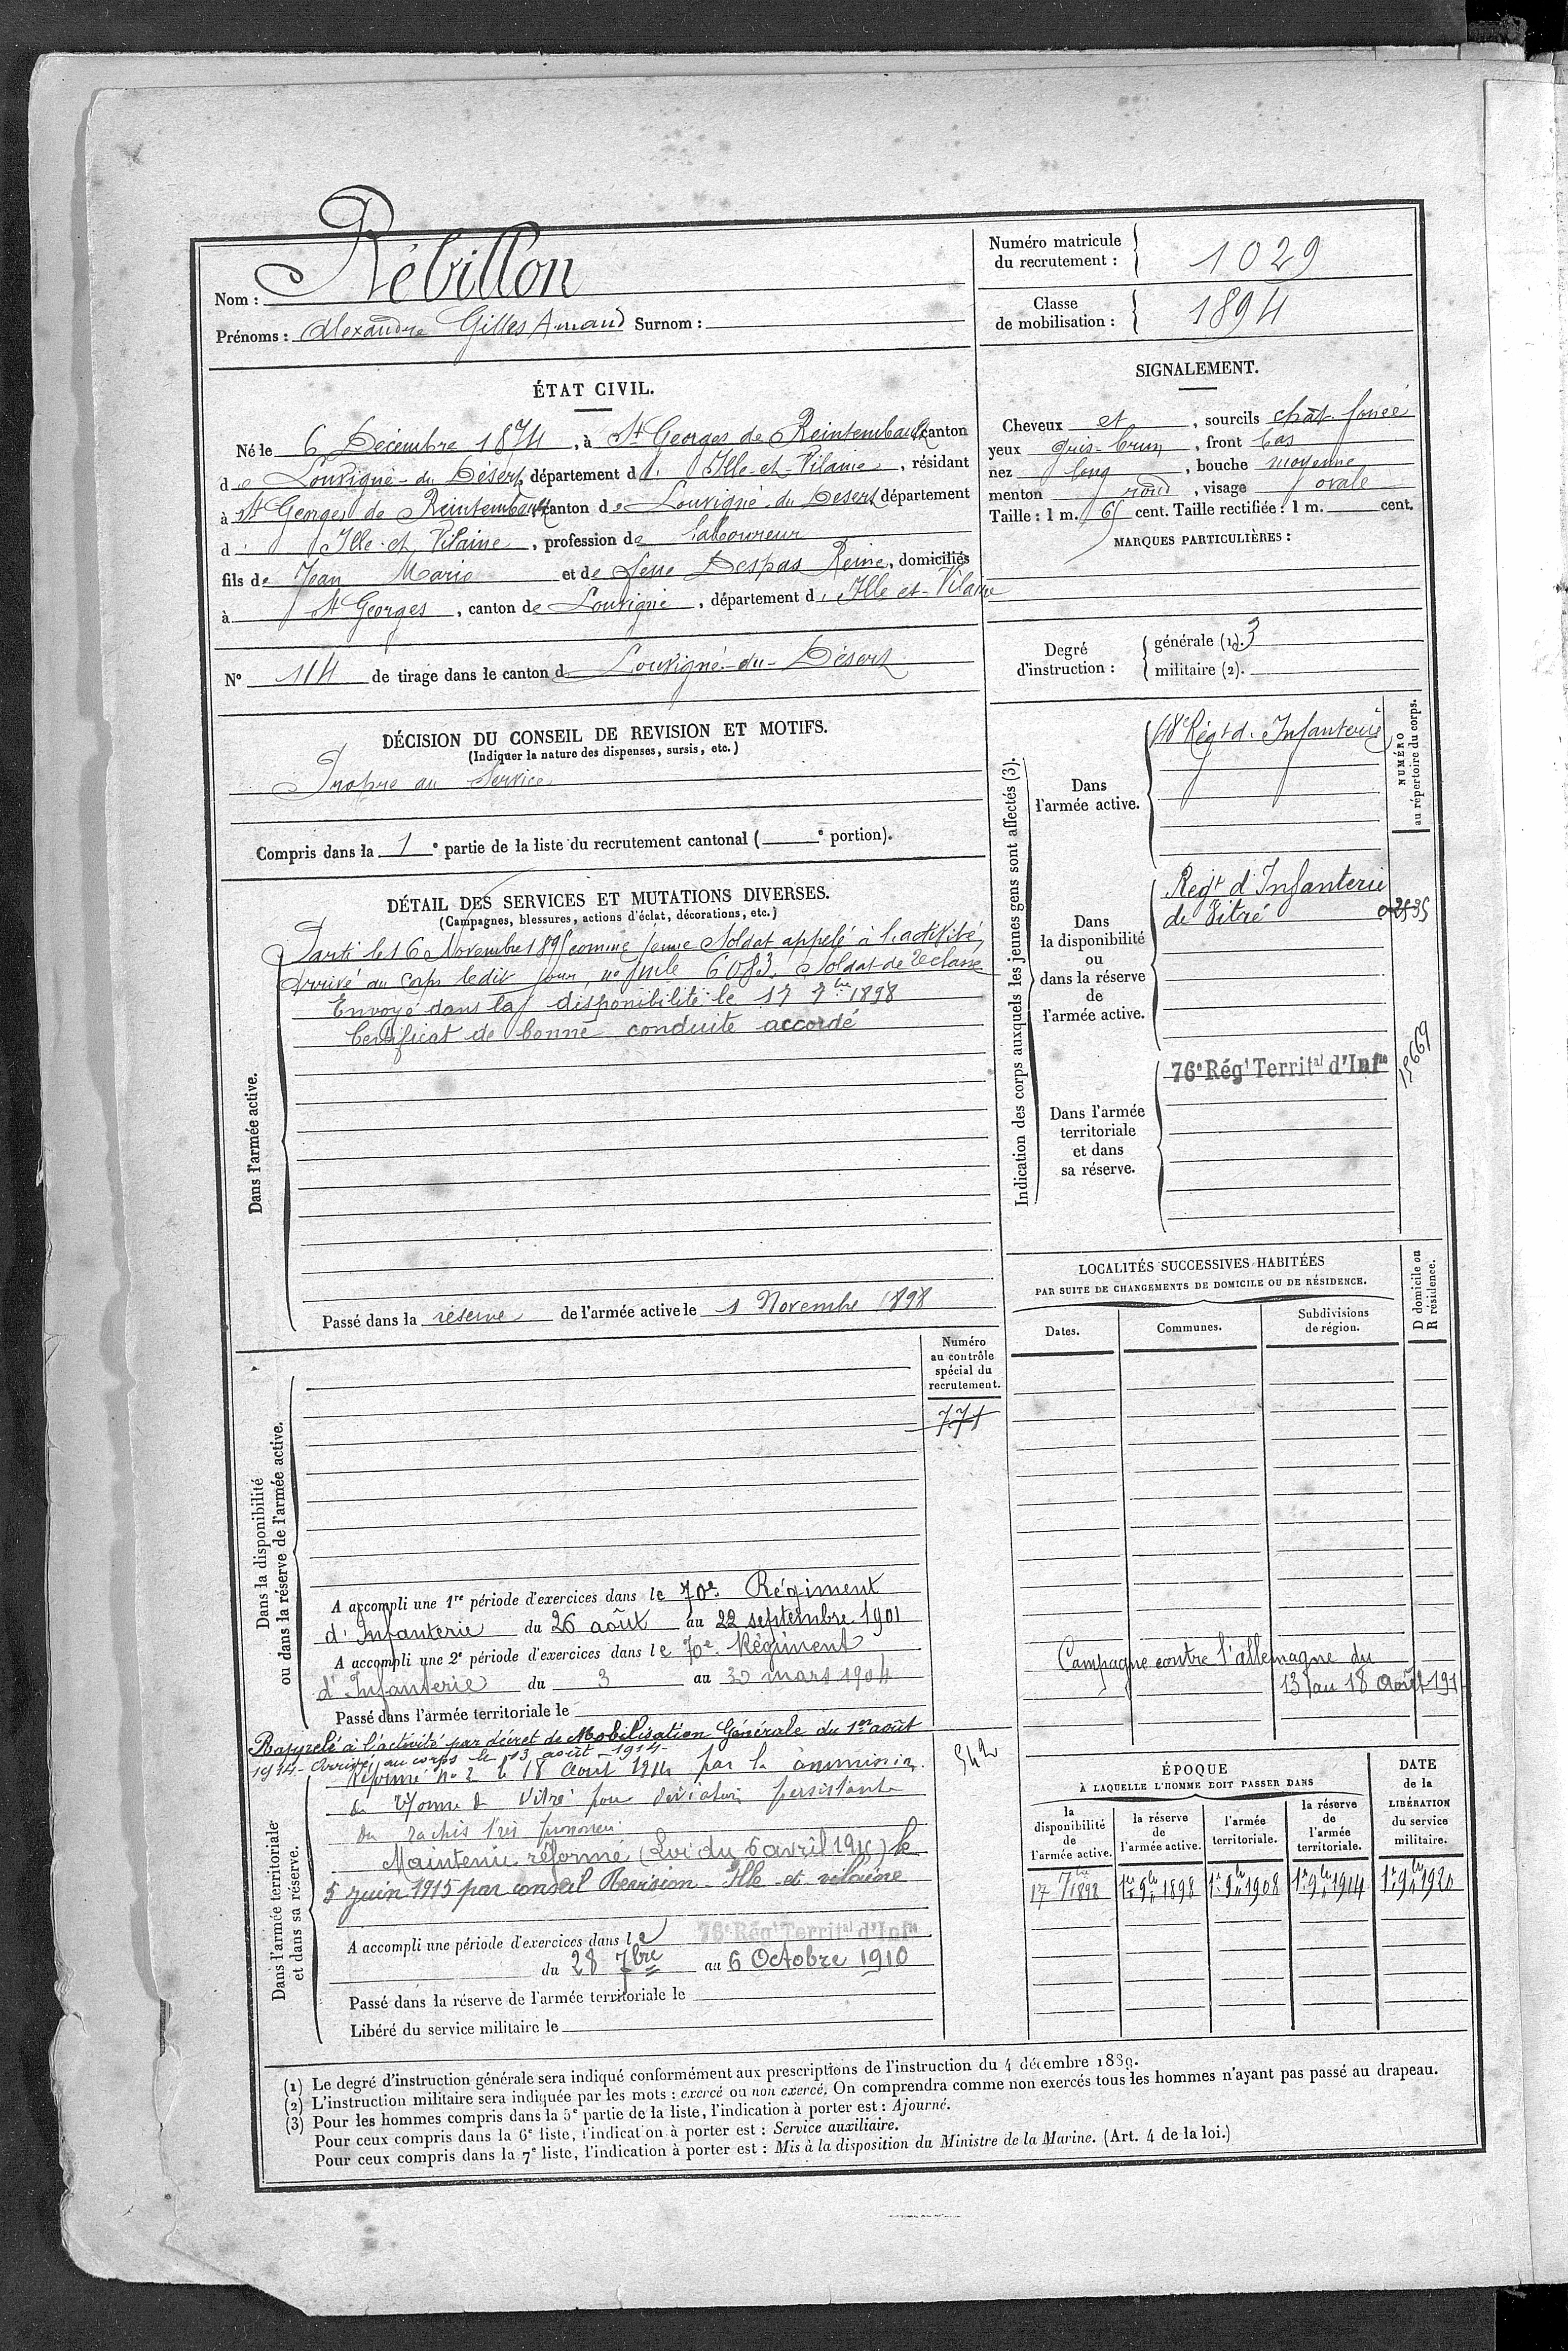 Nom : Rébillon
Prénoms : Alexandre Gilles Amand Surnom :
Numéro matricule du recrutement : 1029
Classe de mobilisation : 1894
ÉTAT CIVIL.
Né le 6 Décembre 1874, à St Georges de Reintembault, canton
de Louvigné-du-Désert, département d' Ille-et-Vilaine, résidant
à St Georges de Reintembault, canton de Louvigné-du-Désert, département
d' Ille-et-Vilaine, profession de laboureur
fils de Jean Marie et de feue Despas Reine, domiciliés
à St Georges, canton de Louvigné, département d' Ille-et-Vilaine
N° 114 de tirage dans le canton de Louvigné-du-Désert
SIGNALEMENT.
Cheveux et, sourcils chât. foncé
yeux gris-brun, front bas
nez long, bouche moyenne
menton rond, visage ovale
Taille : 1 m. 65 cent. Taille rectifiée : 1 m. cent.
MARQUES PARTICULIÈRES :
Degré d'instruction : générale (1). 3
militaire (2).
DÉCISION DU CONSEIL DE REVISION ET MOTIFS.
(Indiquer la nature des dispenses, sursis, etc.)
Propre au Service
Compris dans la 1e partie de la liste du recrutement cantonal ( e portion).
DÉTAIL DES SERVICES ET MUTATIONS DIVERSES.
(Campagnes, blessures, actions d'éclat, décorations, etc.)
Dans l'armée active.
Parti le 16 Novembre 1895 comme jeune Soldat appelé à l'activité,
Arrivé au corps ledit jour, no mle 6083. Soldat de 2e classe
Envoyé dans la disponibilité le 17 7bre 1898
Certificat de bonne conduite accordé
Passé dans la réserve de l'armée active le 1 Novembre 1898
Indication des corps auxquels les jeunes gens sont affectés (3).
NUMÉRO au répertoire du corps.
Dans l'armée active.
48e Régt d'Infanterie
Dans la disponibilité ou dans la réserve de l'armée active.
Régt d'Infanterie
de Vitré 02535
Dans l'armée territoriale et dans sa réserve.
76e Régt Territal d'Infie
LOCALITÉS SUCCESSIVES HABITÉES
PAR SUITE DE CHANGEMENTS DE DOMICILE OU DE RÉSIDENCE.
Dates. Communes. Subdivisions de région. D domicile ou R résidence.
Campagne contre l'allemagne du
13 au 18 Août 191
Dans la disponibilité ou dans la réserve de l'armée active.
Numéro au contrôle spécial du recrutement.
771
A accompli une 1re période d'exercices dans le 70e Régiment
d'Infanterie du 26 août au 22 septembre 1901
A accompli une 2e période d'exercices dans le 70e Régiment
d'Infanterie du 3 au 30 mars 1904
Passé dans l'armée territoriale le
Dans l'armée territoriale et dans sa réserve.
Rappelé à l'activité par décret de Mobilisation Générale du 1er août
1914 - Arrivé au corps le 13 août 1914 -
542
Réformé no 2 le 18 Août 1914 par la
de Vitré pour déviation persistante
du rachis très prononcé
Maintenu réformé (Loi du 6 avril 1915) le
5 juin 1915 par conseil Revision Ille et vilaine
A accompli une période d'exercices dans le 76e Régt Territal d'Infie
du 28 7bre au 6 Octobre 1910
Passé dans la réserve de l'armée territoriale le
Libéré du service militaire le
ÉPOQUE
À LAQUELLE L'HOMME DOIT PASSER DANS
la disponibilité de l'armée active. la réserve de l'armée active. l'armée territoriale. la réserve de l'armée territoriale. DATE de la LIBÉRATION du service militaire.
17 7bre 1898 1er 9bre 1898 1er 9bre 1908 1er 9bre 1914 1er 9bre 1920
(1) Le degré d'instruction générale sera indiqué conformément aux prescriptions de l'instruction du 4 décembre 1889.
(2) L'instruction militaire sera indiquée par les mots : exercé ou non exercé. On comprendra comme non exercés tous les hommes n'ayant pas passé au drapeau.
(3) Pour les hommes compris dans la 5e partie de la liste, l'indication à porter est : Ajourné.
Pour ceux compris dans la 6e liste, l'indication à porter est : Service auxiliaire.
Pour ceux compris dans la 7e liste, l'indication à porter est : Mis à la disposition du Ministre de la Marine. (Art. 4 de la loi.)